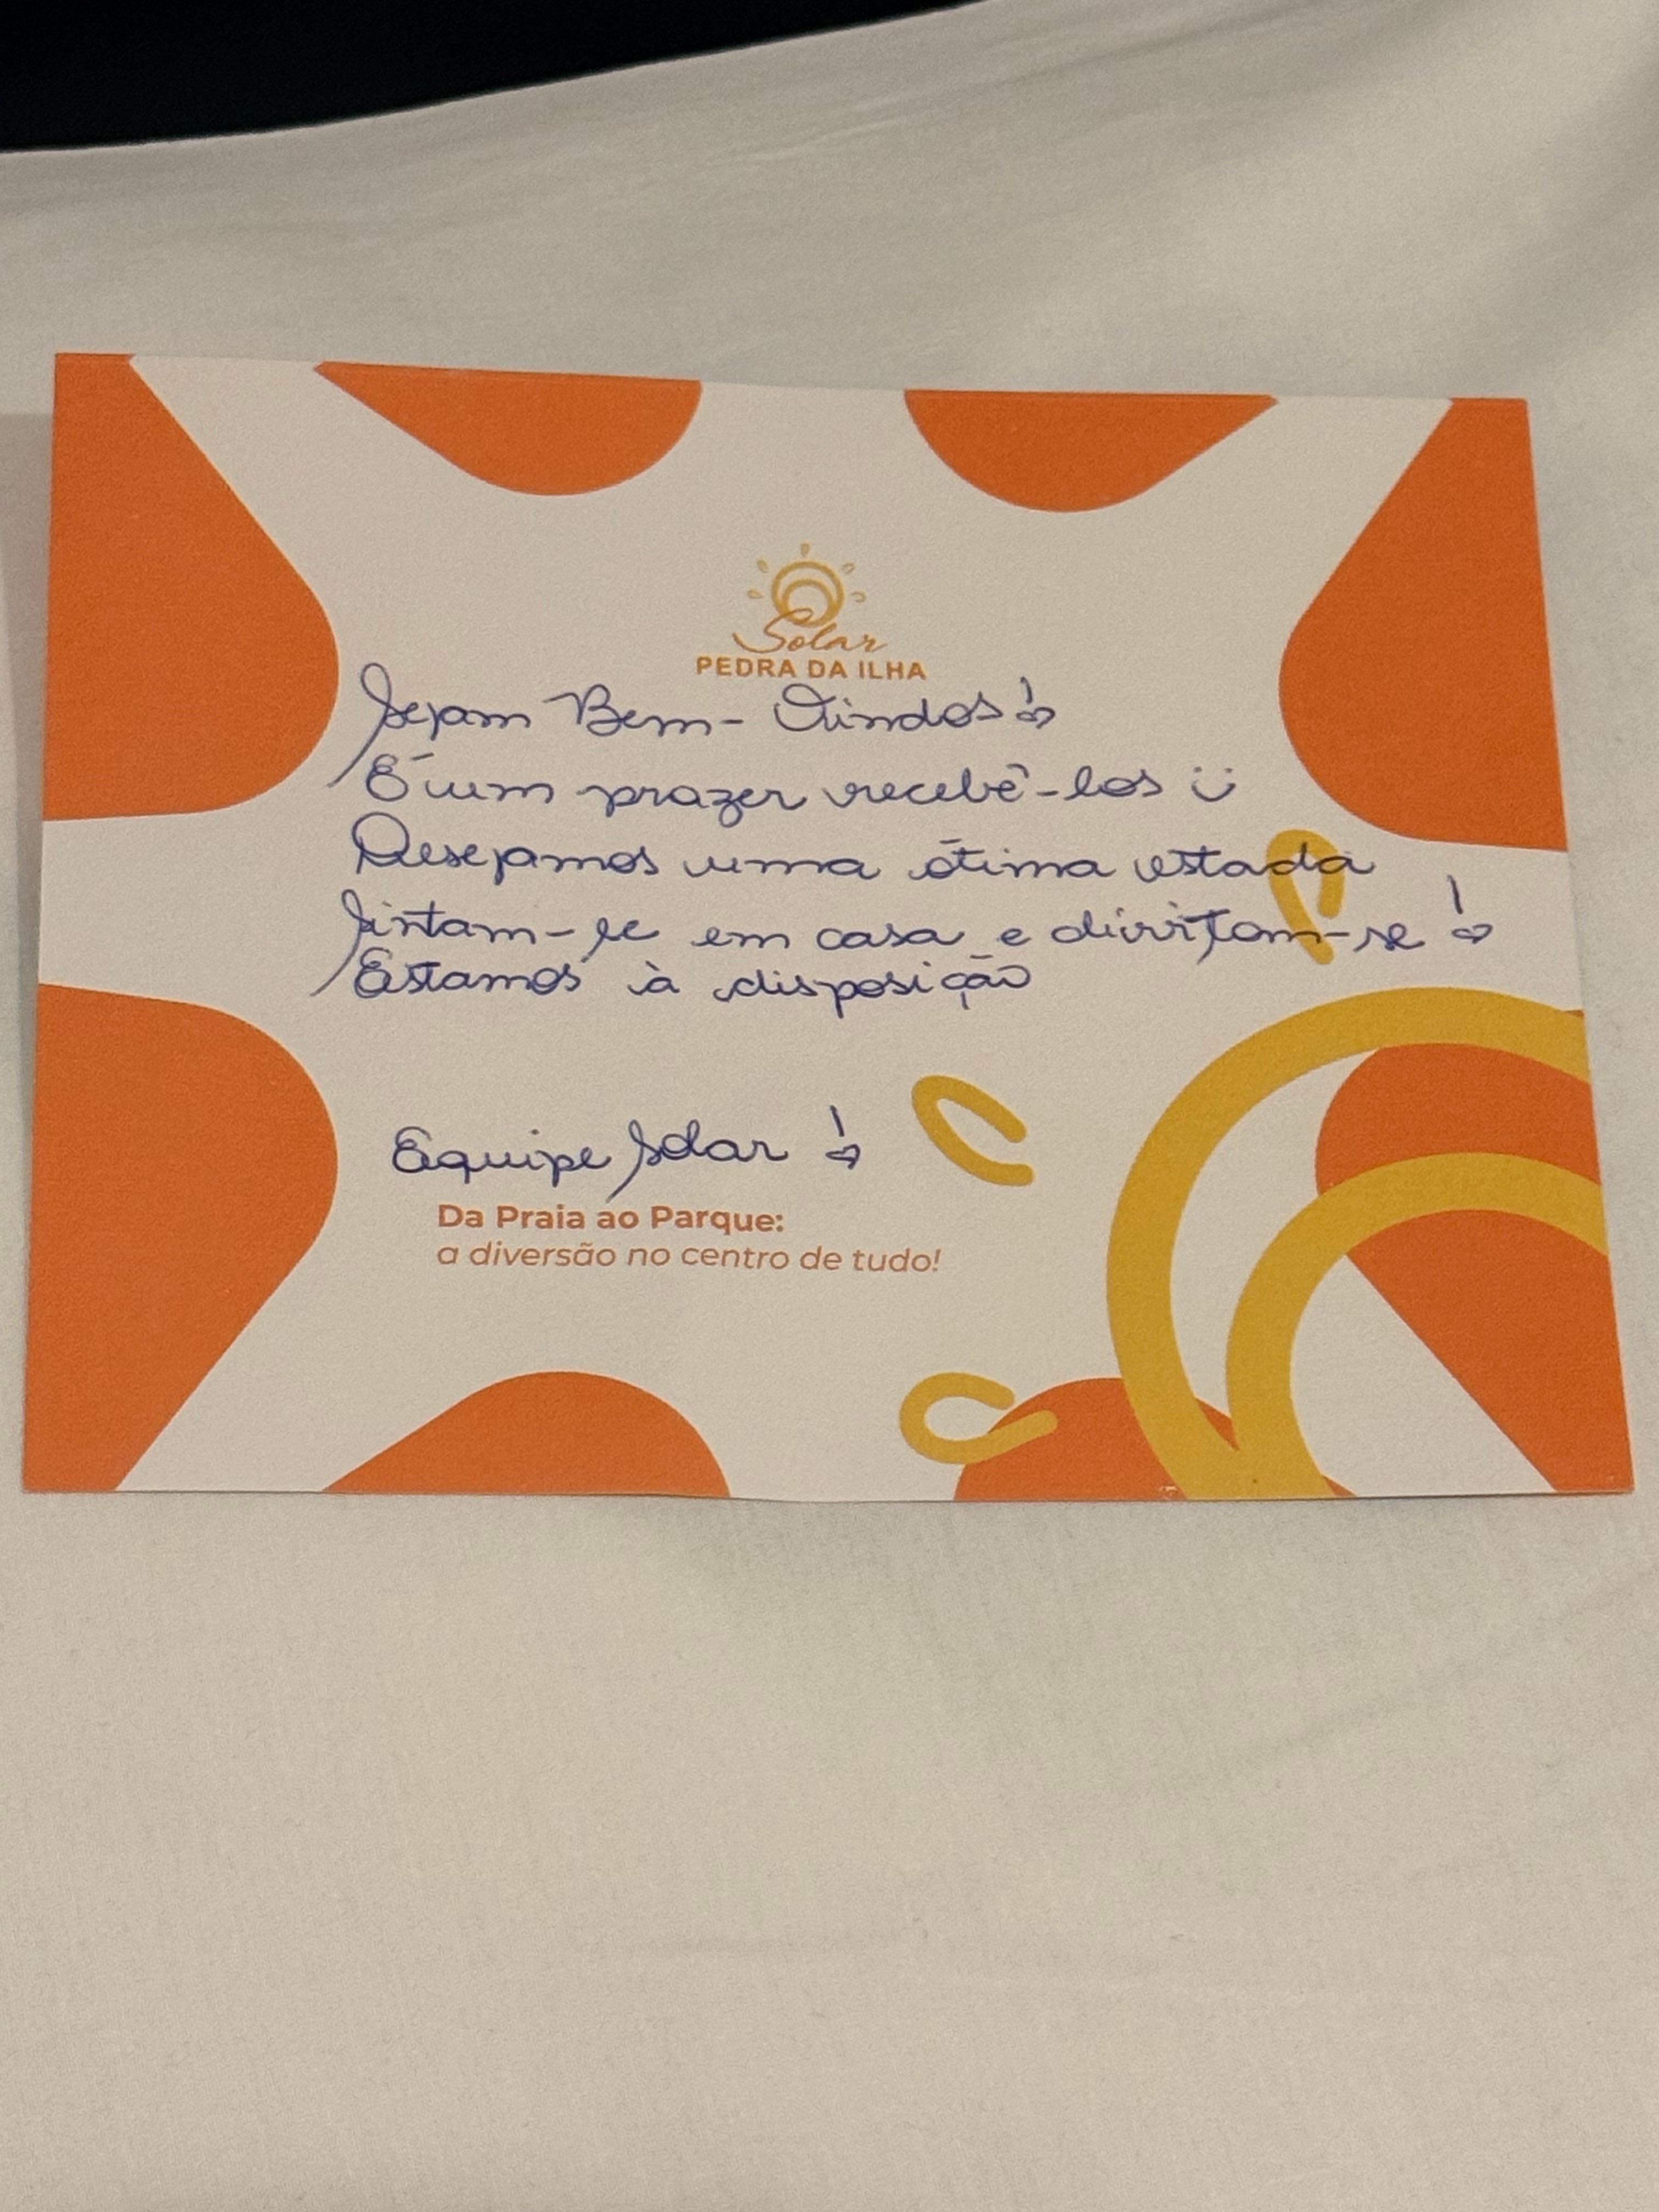 Solar
PEDRA DA ILHA
Sejam Bem-Vindos!
É um prazer recebê-los :)
Desejamos uma ótima estada
Sintam-se em casa e divirtam-se!
Estamos à disposição
Equipe Solar!
Da Praia ao Parque:
a diversão no centro de tudo!